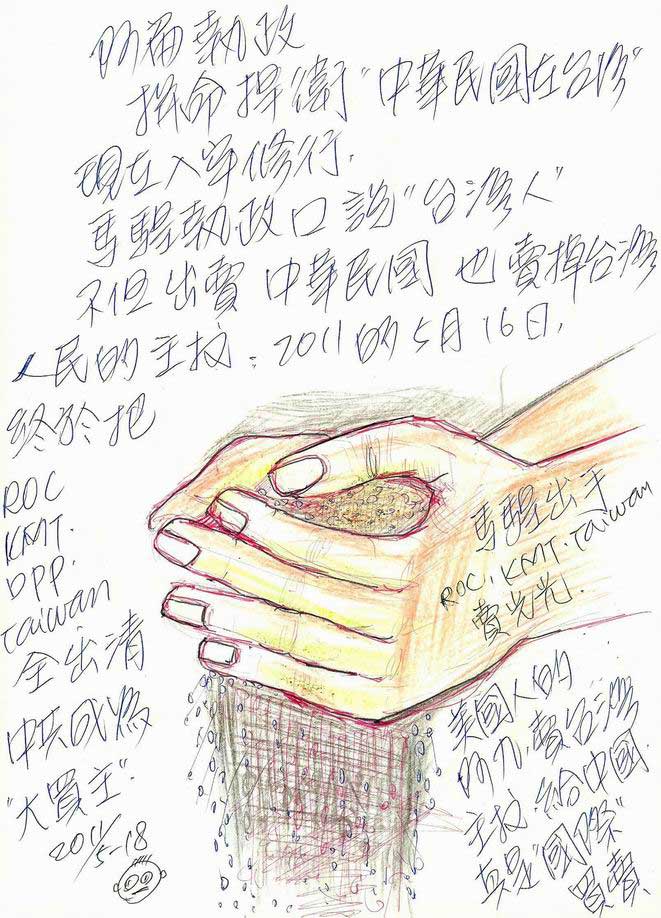 阿扁執政
拼命捍衛"中華民國在台灣"
現在入牢修行.
馬騜執政口說"台灣人"
不但出賣中華民國也賣掉台灣
人民的主权:2011的5月16日,
終於把
ROC
KMT.
DPP.
Taiwan
全出清
中共成為
"大買主".
2011/5-18
馬騜出手
ROC, KMT. Taiwan
賣光光.
美國人的
台灣
主权, 給中國.
真是"國際"
買賣